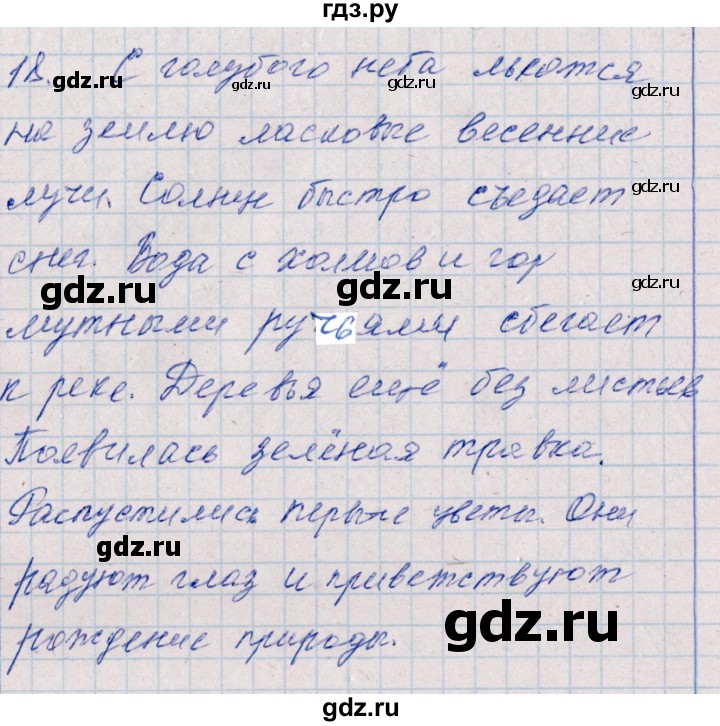 гдз.ру
18. С голубого неба лькотся
на землю ласковые весенние
лучи. Солнце быстро съедает
снег. Вода с холмов и гор
мутными ручьями сбегает
к реке. Деревья ещё без листьев
Появилась зелёная травка.
Распустились первые цветы. Они
радуют глаз и приветствуют
рождение природы.
gdz.ru
gdz.ru
gdz.ru
gdz.ru
gdz.ru
gdz.ru
gdz.ru
gdz.ru
gdz.ru
gdz.ru
gdz.ru
gdz.ru
gdz.ru